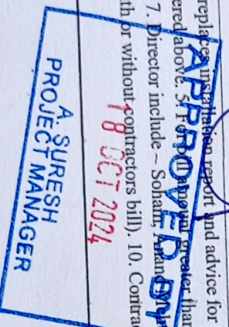 replaces installation report and advice for
ered above. 5. For greater than
7. Director include – Soham,
th or without contractors bill), 10. Contrac
APPROVED BY
18 OCT 2024
A. SURESH
PROJECT MANAGER